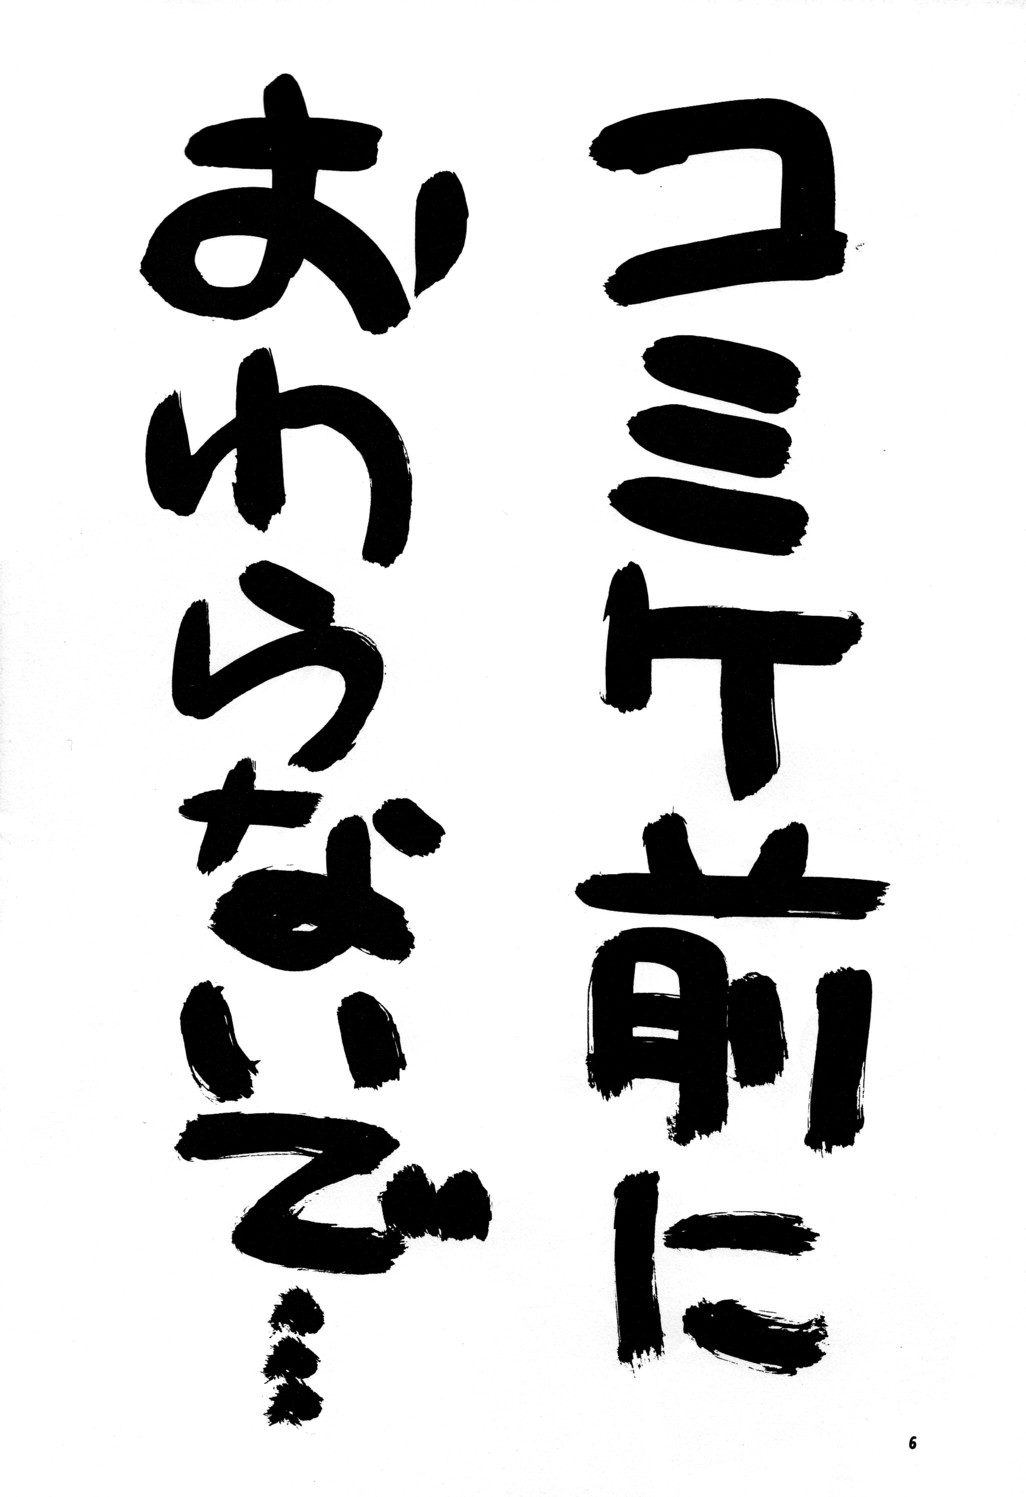 コミケ前に
おわらないで…
6